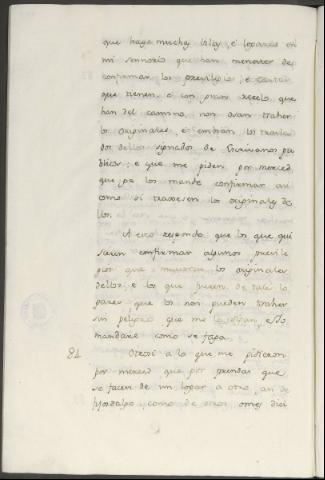 que haya muchas villas, e logares en
mi sennorio que han menester de
confirmar los previlegios, e cartas
que tienen, e con gran recelo que
han del camino, non osan traher
los originales, e embian los trasla
dos dellos signados de Escrivanos pu
blicos; e que me piden por merced
que yo los mande confirmar asi
como si traxesen los originales de
llos.
A esto respondo que los que qui
sieren confirmar algunos previle
gios que muestren los originales
dellos e los que fueren de tales lo
gares que los non pueden traher
sin peligro que me lo digan, e Yo
mandaré como se faga.
81 Otrosi a lo que me pidieron
por merced que por prendas que
se facen de un logar a otro, asi de
fijosdalgo, como de otros omes